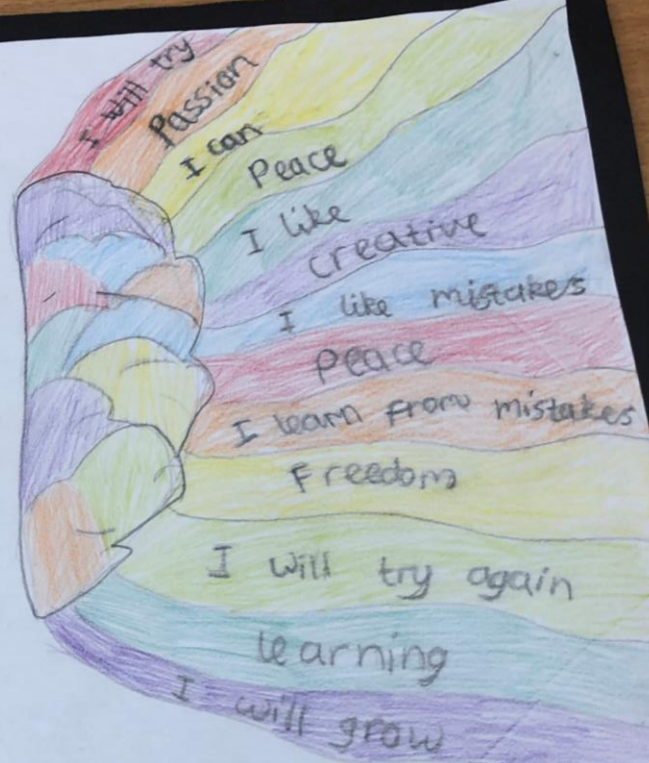 I will try
Passion
I can
Peace
I like
creative
I like mistakes
Peace
I learn from mistakes
Freedom
I will try again
learning
I will grow